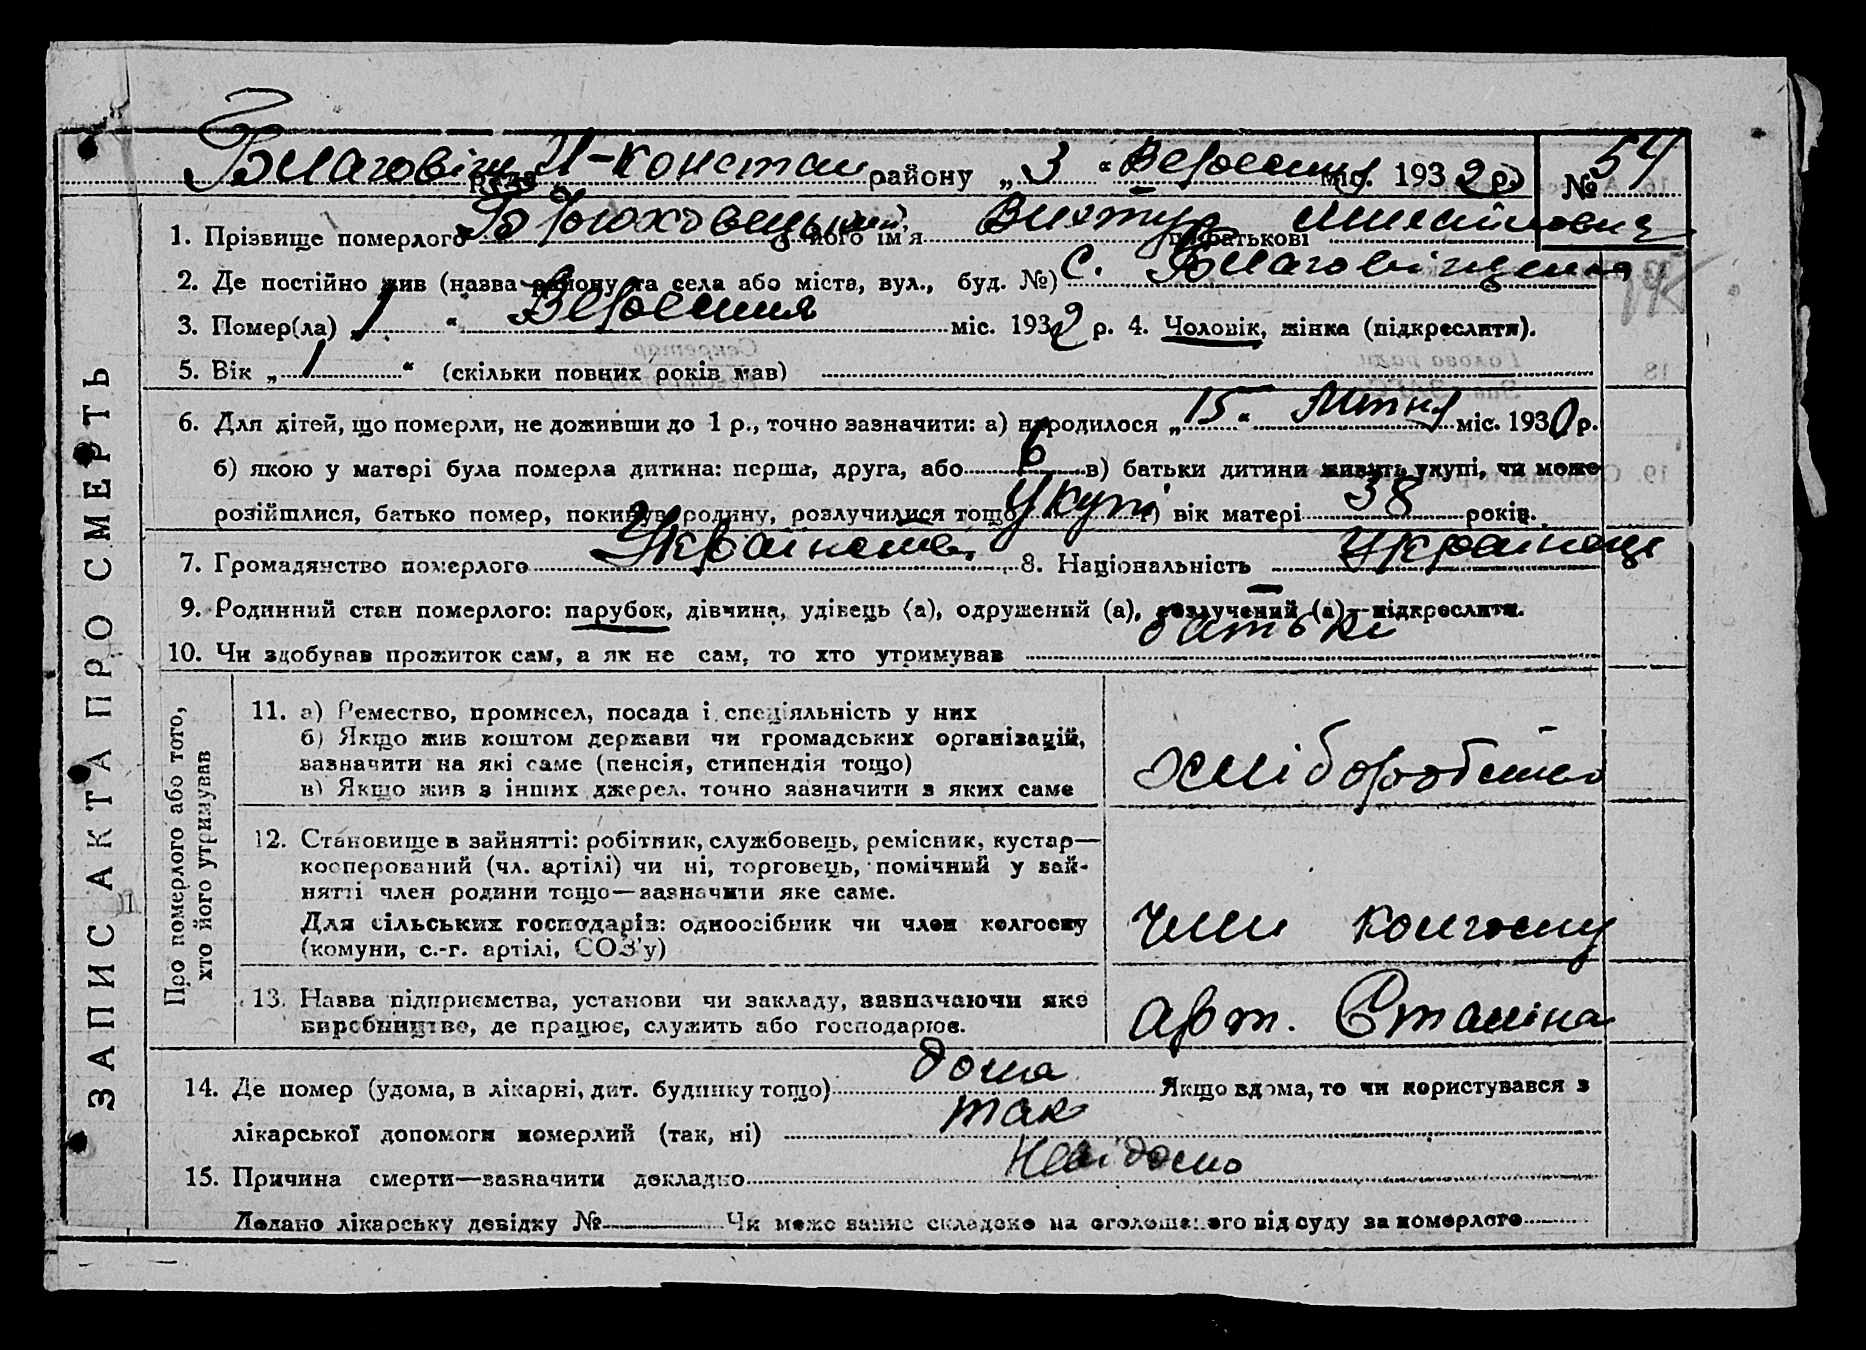 ЗАПИС АКТА ПРО СМЕРТЬ
Благовіщ. Н-констан району „3“ Вересния міс. 1932 р. № 54
1. Прізвище померлого Брюховецький його ім'я Виктур по батькові Михайлович
2. Де постійно жив (назва району та села або міста, вул., буд. №) с. Благовіщення
3. Помер(ла) 1 “ Вересния міс. 1932 р. 4. Чоловік, жінка (підкреслити).
5. Вік „1“ (скільки повних років мав)
6. Для дітей, що померли, не доживши до 1 р., точно зазначити: а) народилося „15“ Липня міс. 1930 р.
б) якою у матері була померла дитина: перша, друга, або 6 в) батьки дитини живуть укупі, чи може
розійшлися, батько помер, покинув родину, розлучилися тощо Укупі г) вік матері 38 років.
7. Громадянство померлого Українств. 8. Національність Українець
9. Родинний стан померлого: парубок, дівчина, удівець (а), одружений (а), розлучений (а)—підкреслити.
10. Чи здобував прожиток сам, а як не сам, то хто утримував батьки
Про померлого або того, хто його утримував
11. а) Ремество, промисел, посада і спеціяльність у них
б) Якщо жив коштом держави чи громадських організацій,
зазначити на які саме (пенсія, стипендія тощо)
в) Якщо жив з інших джерел, точно зазначити з яких саме
хліборобство
12. Становище в зайнятті: робітник, службовець, ремісник, кустар—
кооперований (чл. артілі) чи ні, торговець, помічний у зай-
нятті член родини тощо—зазначити яке саме.
Для сільських господарів: одноосібник чи член колгоспу
(комуни, с.-г. артілі, СОЗ'у)
член колгоспу
13. Назва підприємства, установи чи закладу, зазначаючи яке
виробництво, де працює, служить або господарює.
арт. Сталіна
14. Де помер (удома, в лікарні, дит. будинку тощо) дома Якщо вдома, то чи користувався з
лікарської допомоги померлий (так, ні) так
15. Причина смерти—зазначити докладно Невідомо
Додано лікарську довідку № Чи може запис складено на оголошеного від суду за померлого